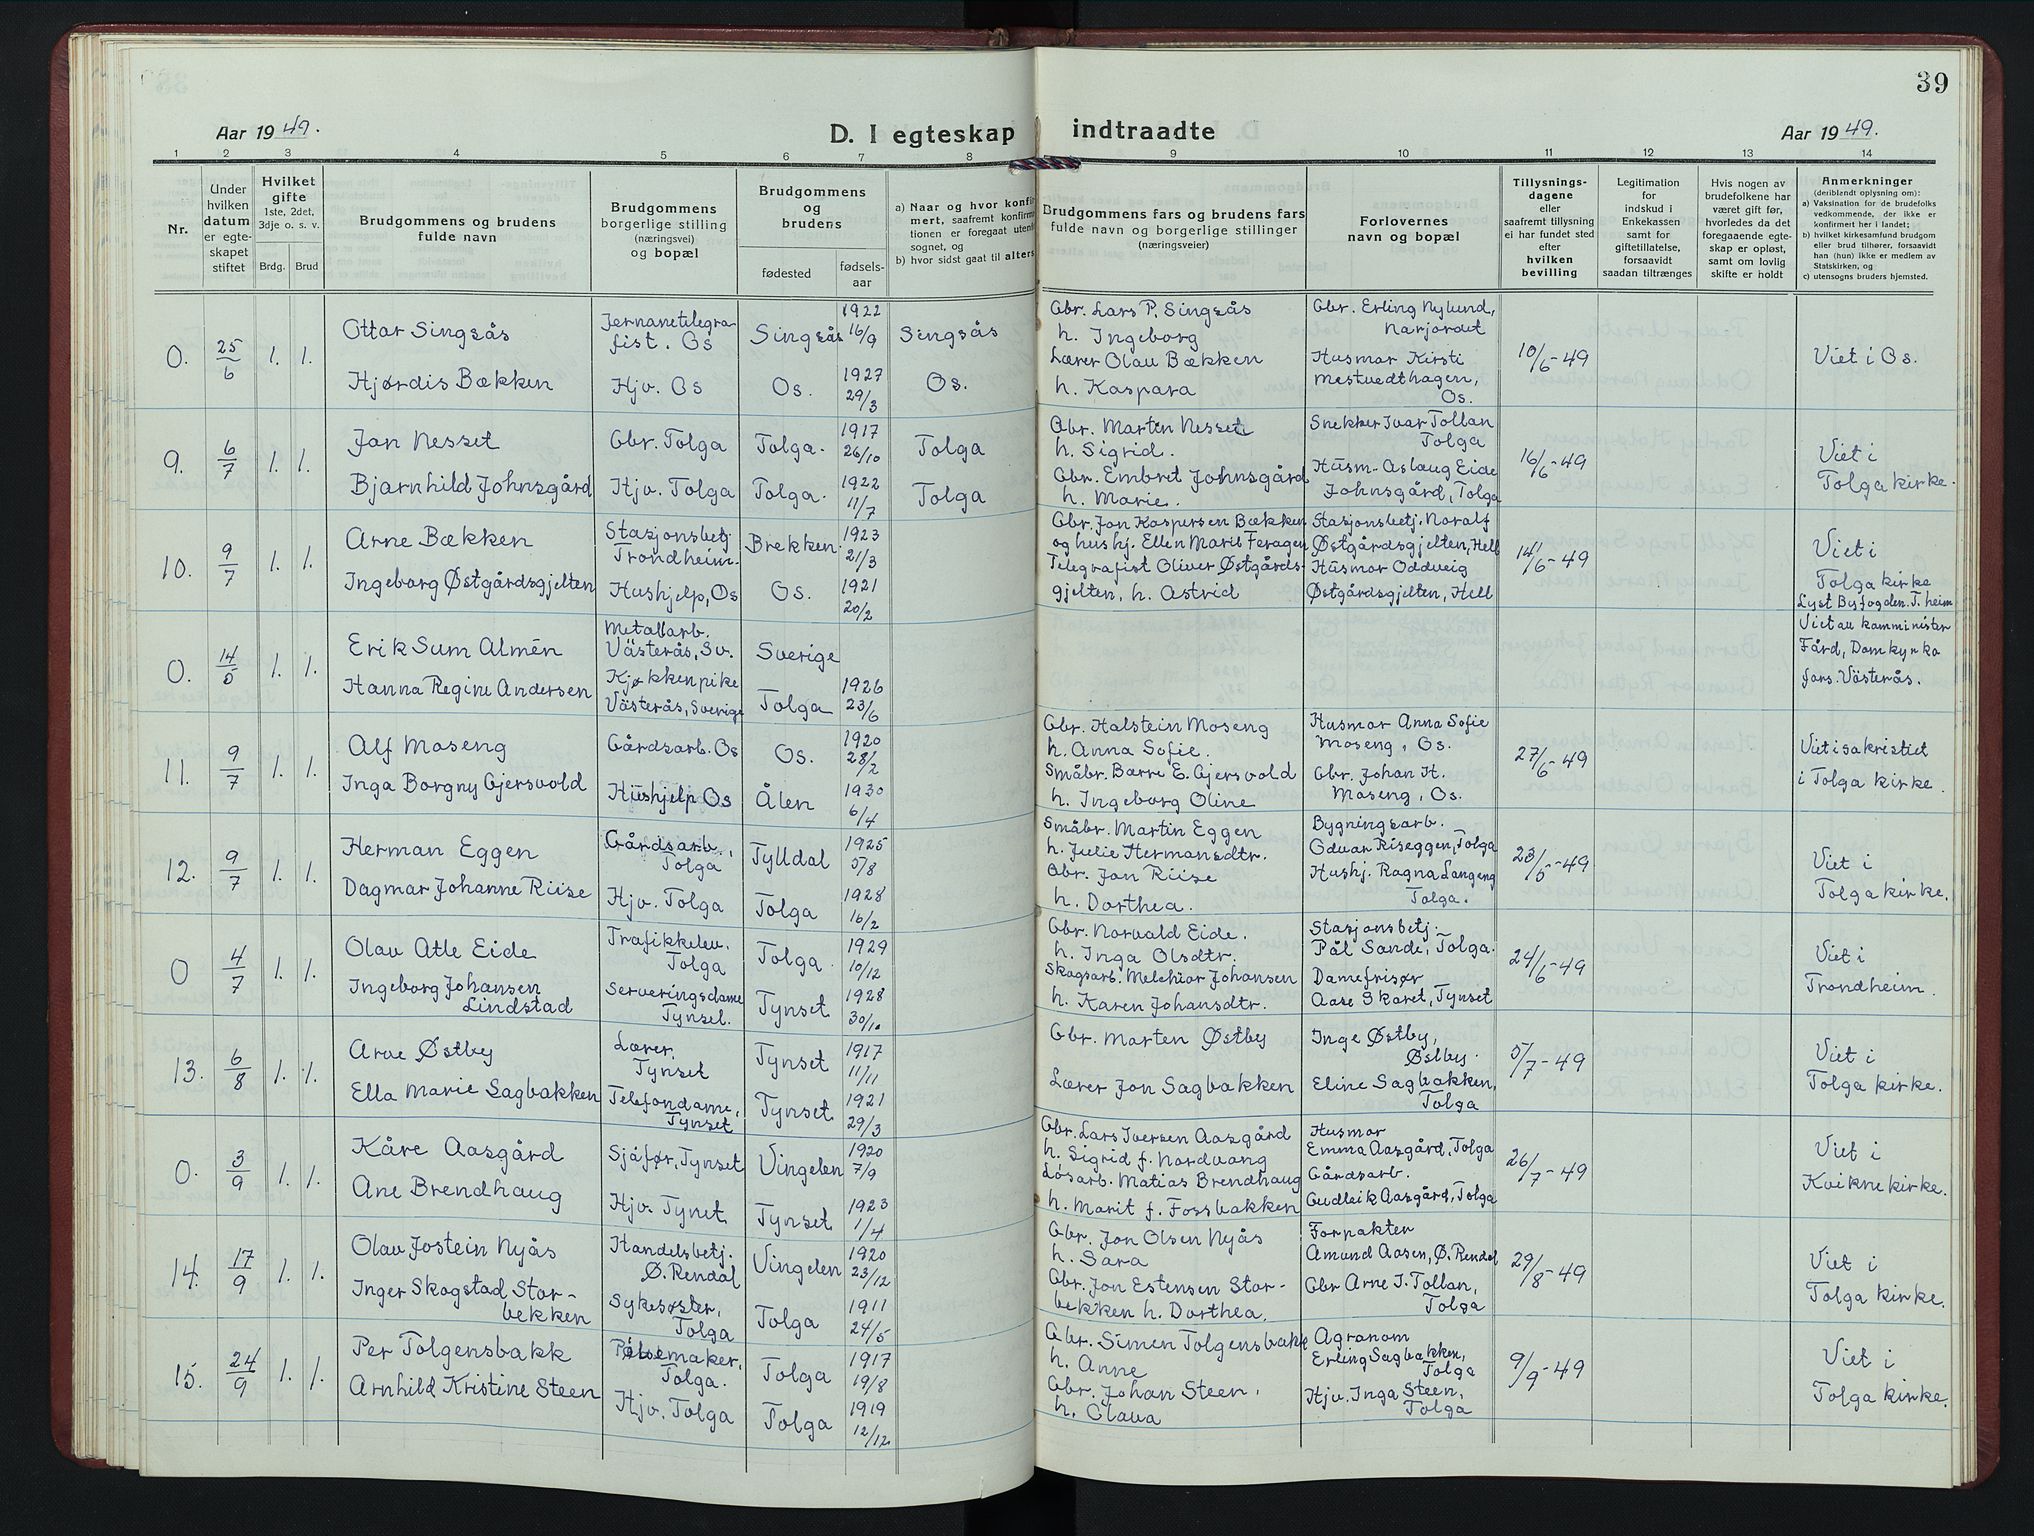 39
Aar 1949.
D. I egteskap indtraadte
Aar 1949.
1 2 3 4 5 6 7 8 9 10 11 12 13 14
Nr.
Under hvilken datum er egteskapet stiftet
Hvilket gifte 1ste, 2det, 3dje o. s. v.
Brdg. Brud
Brudgommens og brudens fulde navn
Brudgommens borgerlige stilling (næringsvei) og bopæl
Brudgommens og brudens
fødested
fødselsaar
a) Naar og hvor konfirmert, saafremt konfirmationen er foregaat utenfor sognet, og
b) hvor sidst gaat til alters
Brudgommens fars og brudens fars fulde navn og borgerlige stillinger (næringsveier)
Forlovernes navn og bopæl
Tillysningsdagene eller saafremt tillysning ei har fundet sted efter hvilken bevilling
Legitimation for indskud i Enkekassen samt for giftetillatelse, forsaavidt saadan tiltrænges
Hvis nogen av brudefolkene har været gift før, hvorledes da det foregaaende egteskap er opløst, samt om lovlig skifte er holdt
Anmerkninger (deriblandt oplysning om):
a) Vaksination for de brudefolks vedkommende, der ikke er konfirmert her i landet;
b) hvilket kirkesamfund brudgom eller brud tilhører, forsaavidt han (hun) ikke er medlem av Statskirken, og
c) utensogns bruders hjemsted.
0. 25/6 1. 1. Ottar Singsås Jernanetelegrafist. Os Singsås 1922 16/9 Singsås Gbr. Lars P. Singsås h. Ingeborg Gbr. Erling Nylund, Narjordet 10/6-49 Viet i Os.
Hjørdis Bækken Hjv. Os Os. 1927 29/3 Os. Lærer Olav Bækken h. Kaspara Husmor Kirsti Mestvedthagen, Os.
9. 6/7 1. 1. Jon Nesset Gbr. Tolga Tolga. 1917 26/10 Tolga Gbr. Marten Nesset h. Sigrid. Snekker Ivar Tollan Tolga 16/6-49 Viet i Tolga kirke.
Bjarnhild Johnsgård Hjv. Tolga Tolga. 1922 11/7 Tolga Gbr. Embret Johnsgård h. Marie. Husm. Aslaug Eide Johnsgård, Tolga
10. 9/7 1. 1. Arne Bækken Stasjonsbetj. Trondheim. Brekken 1923 21/3 Gbr. Jon Kaspersen Bækken og hushj. Ellen Marit Feragen Stasjonsbetj. Noralf Østgårdsgjelten, Hell 14/6-49 Viet i Tolga kirke
Ingeborg Østgårdsgjelten Hushjelp, Os Os. 1921 20/2 Telegrafist Oliver Østgårdsgjelten, h. Astrid Husmor Oddveig Østgårdsgjelten, Hell Lyst Byfogden. T.heim
0. 14/5 1. 1. Erik Sum Almén Metallarb. Västerås, Sv. Sverige Viet av komminister Fård, Domkyrko
Hanna Regine Andersen Kjøkkenpike Västerås, Sverige Tolga 1926 23/6 förs. Västerås.
11. 9/7 1. 1. Alf Moseng Gårdsarb. Os Os. 1920 28/2 Gbr. Halstein Moseng h. Anna Sofie. Husmor Anna Sofie Moseng, Os. 27/6-49 Viet i sakristiet i Tolga kirke.
Inga Borgny Gjersvold Hushjelp Os Ålen 1930 6/4 Småbr. Barre E. Gjersvold h. Ingeborg Oline Gbr. Johan H. Moseng, Os.
12. 9/7 1. 1. Herman Eggen Gårdsarb., Tolga Tylldal 1925 5/8 Småbr. Martin Eggen h. Julie Hermansdtr. Bygningsarb. Odvar Riseggen, Tolga 23/5-49 Viet i Tolga kirke.
Dagmar Johanne Riise Hjv. Tolga Tolga 1928 16/2 Gbr. Jon Riise h. Dorthea. Hushj. Ragna Langeng Tolga.
0 4/7 1. 1. Olav Atle Eide Trafikkelev. Tolga Tolga 1929 10/12 Gbr. Norvald Eide. h. Inga Olsdtr. Stasjonsbetj. Pål Sande, Tolga. 24/6-49 Viet i Trondheim.
Ingeborg Johansen Lindstad Serveringsdame Tynset. Tynset 1928 30/10 Skogsarb. Melchior Johansen h. Karen Johansdtr. Damefrisør Aase Skaret, Tynset
13. 6/8 1. 1. Arve Østby Lærer, Tynset Tynset 1917 11/11 Gbr. Morten Østby Inge Østby, Østby. 5/7-49 Viet i Tolga kirke.
Ella Marie Sagbakken Telefondame, Tynset Tynset 1921 29/3 Lærer Jon Sagbakken Eline Sagbakken, Tolga
0. 3/9 1. 1. Kåre Aasgård Sjåfør, Tynset Vingelen 1920 7/9 Gbr. Lars Iversen Aasgård h. Sigrid f. Nordvang Husmor Emma Aasgård, Tolga 26/7-49 Viet i Kvikne kirke.
Ane Brendhaug Hjv. Tynet Tynset 1923 1/4 Løsarb. Matias Brendhaug h. Marit f. Fossbakken Gårdsarb. Gudleik Aasgård, Tolga
14. 17/9 1. 1. Olav Jostein Nyås Handelsbetj. Ø. Rendal Vingelen 1920 23/12 Gbr. Jon Olsen Nyås h. Sara Forpakter Amund Aasen, Ø. Rendal 29/8-49 Viet i Tolga kirke.
Inger Skogstad Storbekken Sykesøster, Tolga Tolga 1911 24/5 Gbr. Jon Estensen Storbekken h. Dorthea. Gbr Arne J. Tollan, Tolga
15. 24/9 1. 1. Per Tolgensbakk Pølsemaker, Tolga. Tolga 1917 19/8 Gbr. Simen Tolgensbakk h. Anne Agronom Erling Sagbakken, Tolga 9/9-49 Viet i Tolga kirke.
Arnhild Kristine Steen Hjv. Tolga Tolga 1919 12/12 Gbr. Johan Steen, h. Olava Hjv. Inga Steen, Tolga